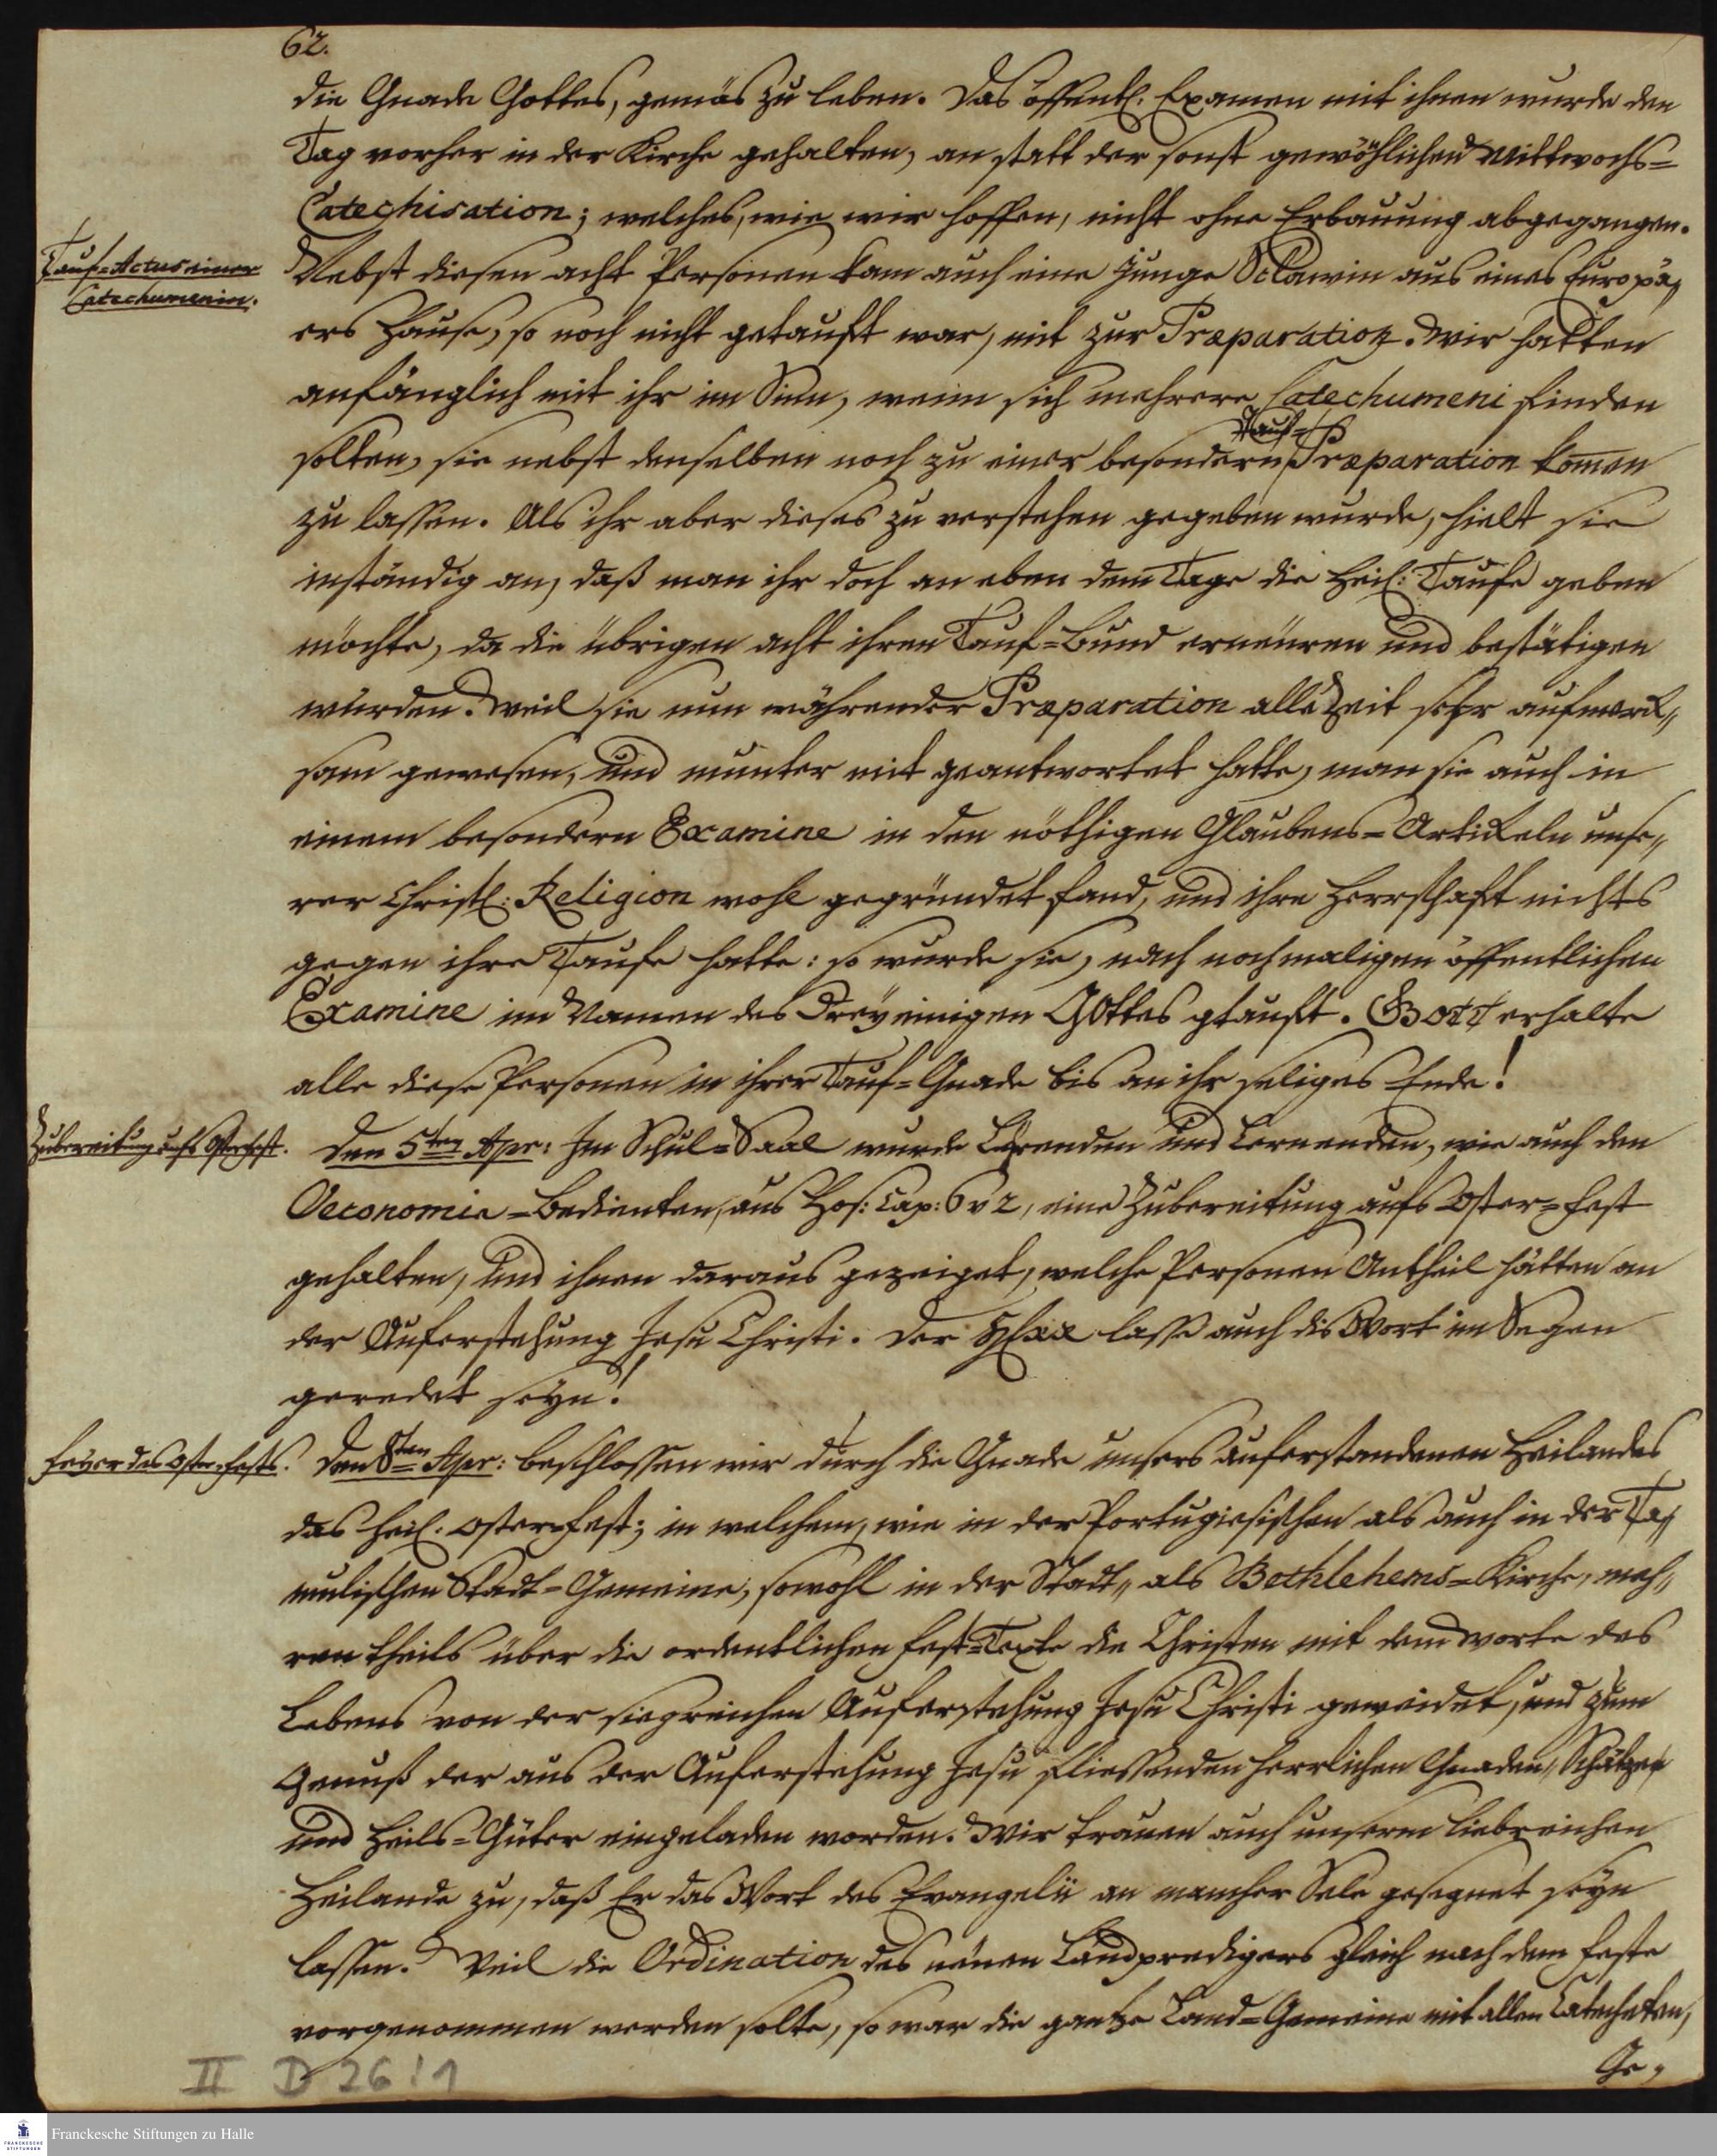 62.
die Gnade Gottes, gemäs zu leben. Das öffentl: Examen mit ihnen wurde den
Tag vorher in der Kirche gehalten, anstatt der sonst gewöhlichen Mittwochs=
Catechisation; welches, wie wir hoffen, nicht ohne Erbauung abgegangen.
Tauf=Actus einer
Catechumenin.
Nebst diesen acht Personen kam auch eine junge Sclavin aus eines Europä„
ers Hause, so noch nicht getauft war, mit zur Præparation. Wir hatten
anfänglich mit ihr im Sinn, wenn sich mehrere Catechumeni finden
solten, sie nebst denselben noch zu einer besondern Tauf=Præparation kom̅en
zu lassen. Als ihr aber dieses zu verstehen gegeben wurde, hielt sie
inständig an, daß man ihr doch an eben dem Tage die heil: Taufe geben
möchte, da die übrigen acht ihren Tauf=Bund erneuren und bestätigen
würden. Weil sie nun währender Præparation allezeit sehr aufmerck„
sam gewesen, und munter mit geantwortet hatte, man sie auch in
einem besondern Examine in den nöthigen Glaubens=Artickeln unse„
rer Christl: Religion wohl gegründet fand, und ihre Herrschaft nichts
gegen ihre Taufe hatte: so wurde sie, nach nochmaligen öffentlichen
Examine im Namen des Dreyeinigen GOttes gtauft. GOTT erhalte
alle diese Personen in ihrer Tauf=Gnade bis an ihr seliges Ende!
Zubereitung aufs Osterfest.
Den 5ten Apr: Im Schul=Saal wurde Lehrenden und Lernenden, wie auch den
Oeconomie=Bedienten, aus Hos: Cap: 6 v 2, eine Zubereitung aufs Oster=Fest
gehalten, und ihnen daraus gezeiget, welche Personen Antheil hätten an
der Auferstehung Jesu Christi. Der HErr lasse auch dis Wort im Segen
geredet seyn!
Feyer des Oster=Fests.
Den 8ten Apr: beschlossen wir durch die Gnade unsers auferstandenen Heilandes
das heil. Oster=Fest; in welchem, wie in der Portugiesischen als auch in der Ta„
mulischen Stadt=Gemeine, sowohl in der Stadt„ als Bethlehems=Kirche, meh„
rentheils über die ordentlichen Fest=Texte die Christen mit dem Worte des
Lebens von der siegreichen Auferstehung Jesu Christi geweidet, und zum
Genuß der aus der Auferstehung Jesu fliessenden herrlichen Gnaden„Schätzen
und Heils=Güter eingeladen worden. Wir trauen auch unserm liebreichen
Heilande zu, daß Er das Wort des Evangelii an mancher Sele gesegnet seyn
lassen. Weil die Ordination des neuen Landpredigers gleich nach dem Feste
vorgenommen werden solte, so war die gantze Land=Gemeine mit allen Catecheten,
Ge„
II D 26:1
Franckesche Stiftungen zu Halle
FRANCKESCHE
STIFTUNGEN